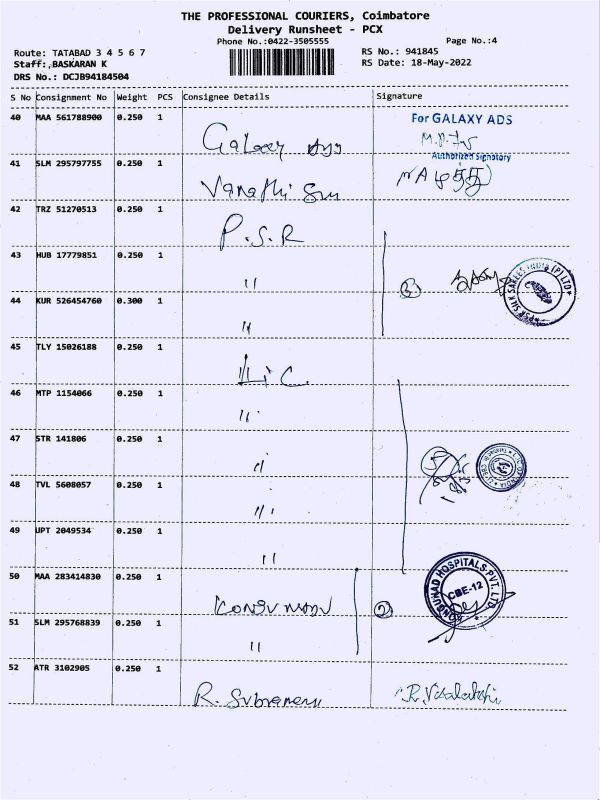 THE PROFESSIONAL COURIERS, Coimbatore
Delivery Runsheet - PCX
Phone No.:0422-3505555
Page No.:4
Route: TATABAD 3 4 5 6 7
RS No.: 941845
Staff:,BASKARAN K
RS Date: 18-May-2022
DRS No.: DCJB94184504
S No Consignment No Weight PCS Consignee Details Signature
40 MAA 561788900 0.250 1 Galaxy For GALAXY ADS
Authorized Signatory
41 SLM 295797755 0.250 1 Vanathi
42 TRZ 51270513 0.250 1 P.S.R
43 HUB 17779851 0.250 1 "
PSR SILK SAREES INDIA (P) LTD
44 KUR 526454760 0.300 1 "
45 TLY 15026188 0.250 1 LIC
46 MTP 1154066 0.250 1 "
47 STR 141806 0.250 1 "
48 TVL 5608057 0.250 1 "
49 UPT 2049534 0.250 1 "
50 MAA 283414830 0.250 1 KONGUNADU HOSPITALS PVT. LTD
CBE-12
51 SLM 295768839 0.250 1 "
52 ATR 3102905 0.250 1 R. R.